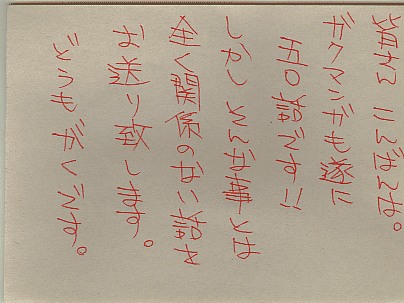 皆さん こんばんは。
デスマッチも遂に
五〇話です!!
しかし そんな事とは
全く関係のない話を
お送り致します。
どうも